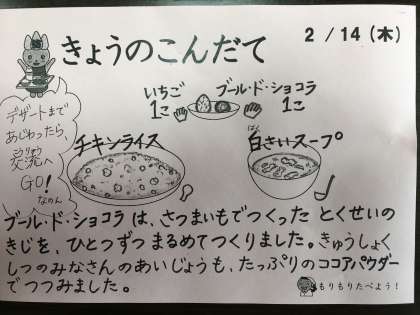 きょうのこんだて
2/14(木)
デザートまで
あじわったら、
こうりゅう
交流へ
GO!
なのん
いちご
1こ
ブール・ド・ショコラ
1こ
チキンライス
はく
白さいスープ
ブール・ド・ショコラは、さつまいもでつくった とくせいの
きじを、ひとつずつ まるめてつくりました。きゅうしょく
しつのみなさんのあいじょうも、たっぷりのココアパウダー
でつつみました。
もりもりたべよう!